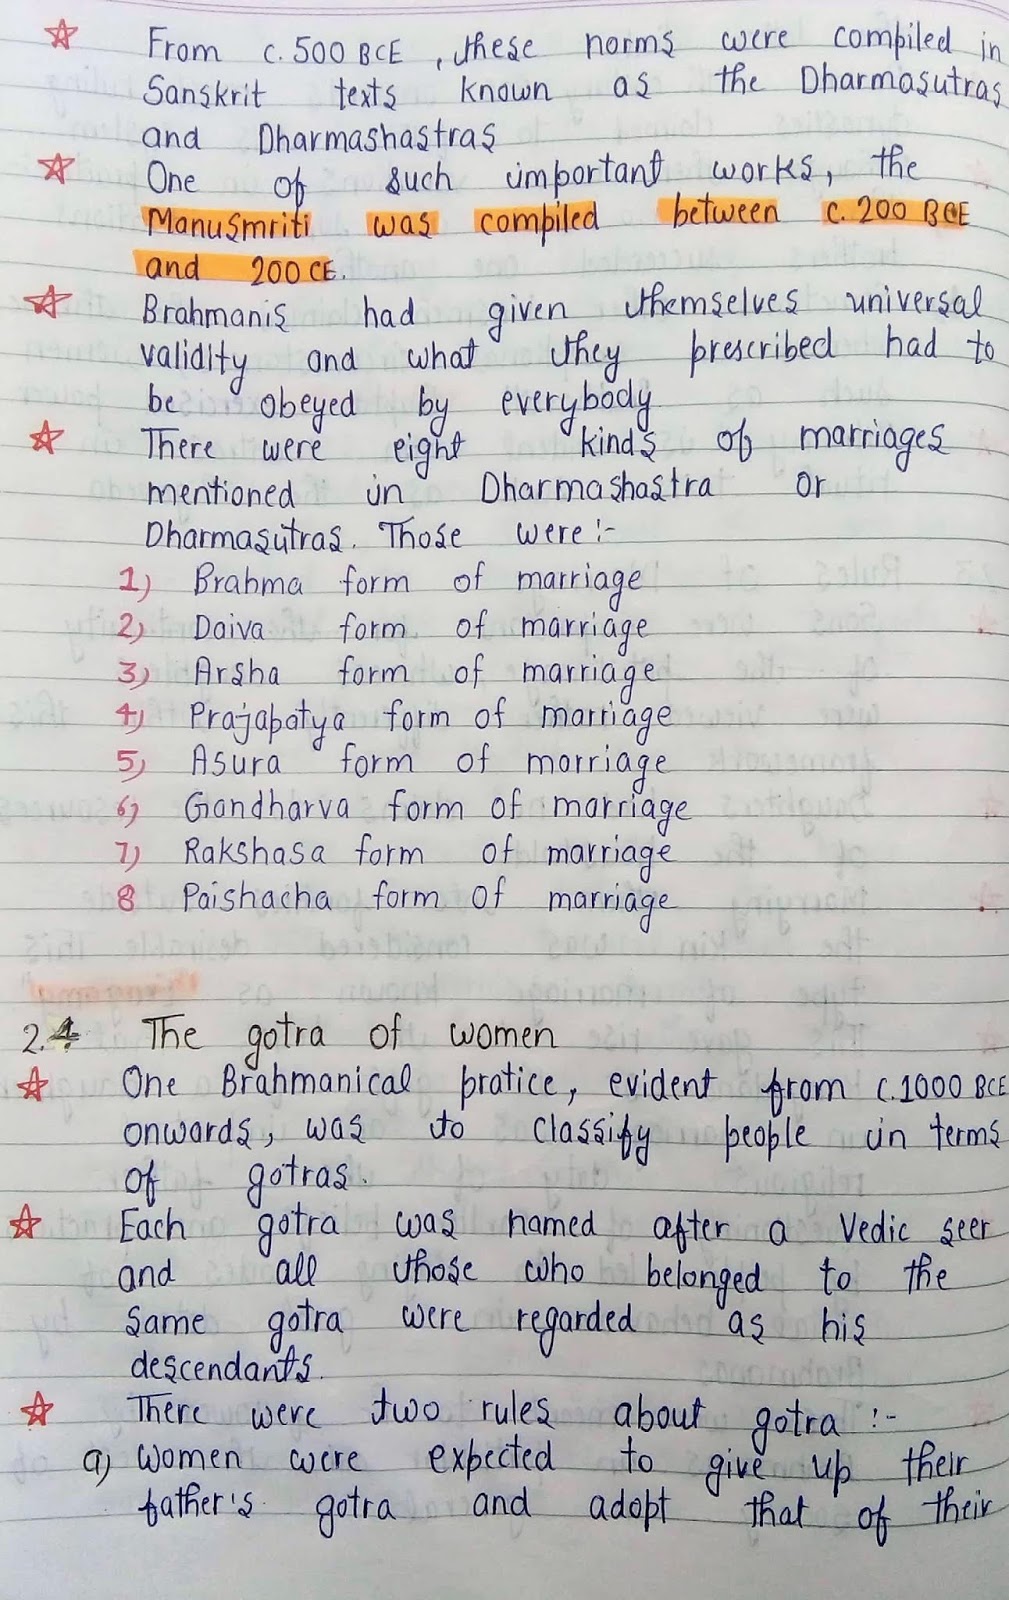 From c.500 BCE , these norms were compiled in
Sanskrit texts known as the Dharmasutras
and Dharmashastras
One of such important works, the
Manusmriti was compiled between c.200 BCE
and 200 CE.
Brahmanis had given themselves universal
validity and what they prescribed had to
be obeyed by everybody
There were eight kinds of marriages
mentioned in Dharmashastra or
Dharmasutras. Those were :-
1) Brahma form of marriage
2) Daiva form of marriage
3) Arsha form of marriage
4) Prajapatya form of marriage
5) Asura form of marriage
6) Gandharva form of marriage
7) Rakshasa form of marriage
8 Paishacha form of marriage
2.4 The gotra of women
One Brahmanical pratice, evident from c.1000 BCE
onwards, was to classify people in terms
of gotras.
Each gotra was named after a Vedic seer
and all those who belonged to the
same gotra were regarded as his
descendants.
There were two rules about gotra :-
a) women were expected to give up their
father's gotra and adopt that of their